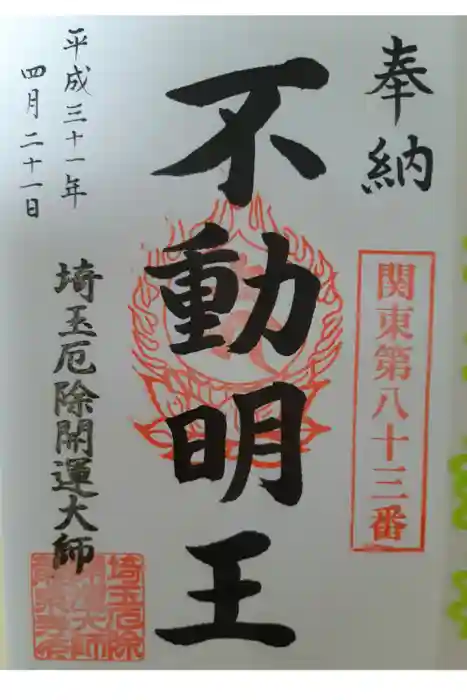 奉納
関東第八十三番
不動明王
平成三十一年
四月二十一日
埼玉厄除開運大師
埼玉厄除
開運大師
龍泉寺印